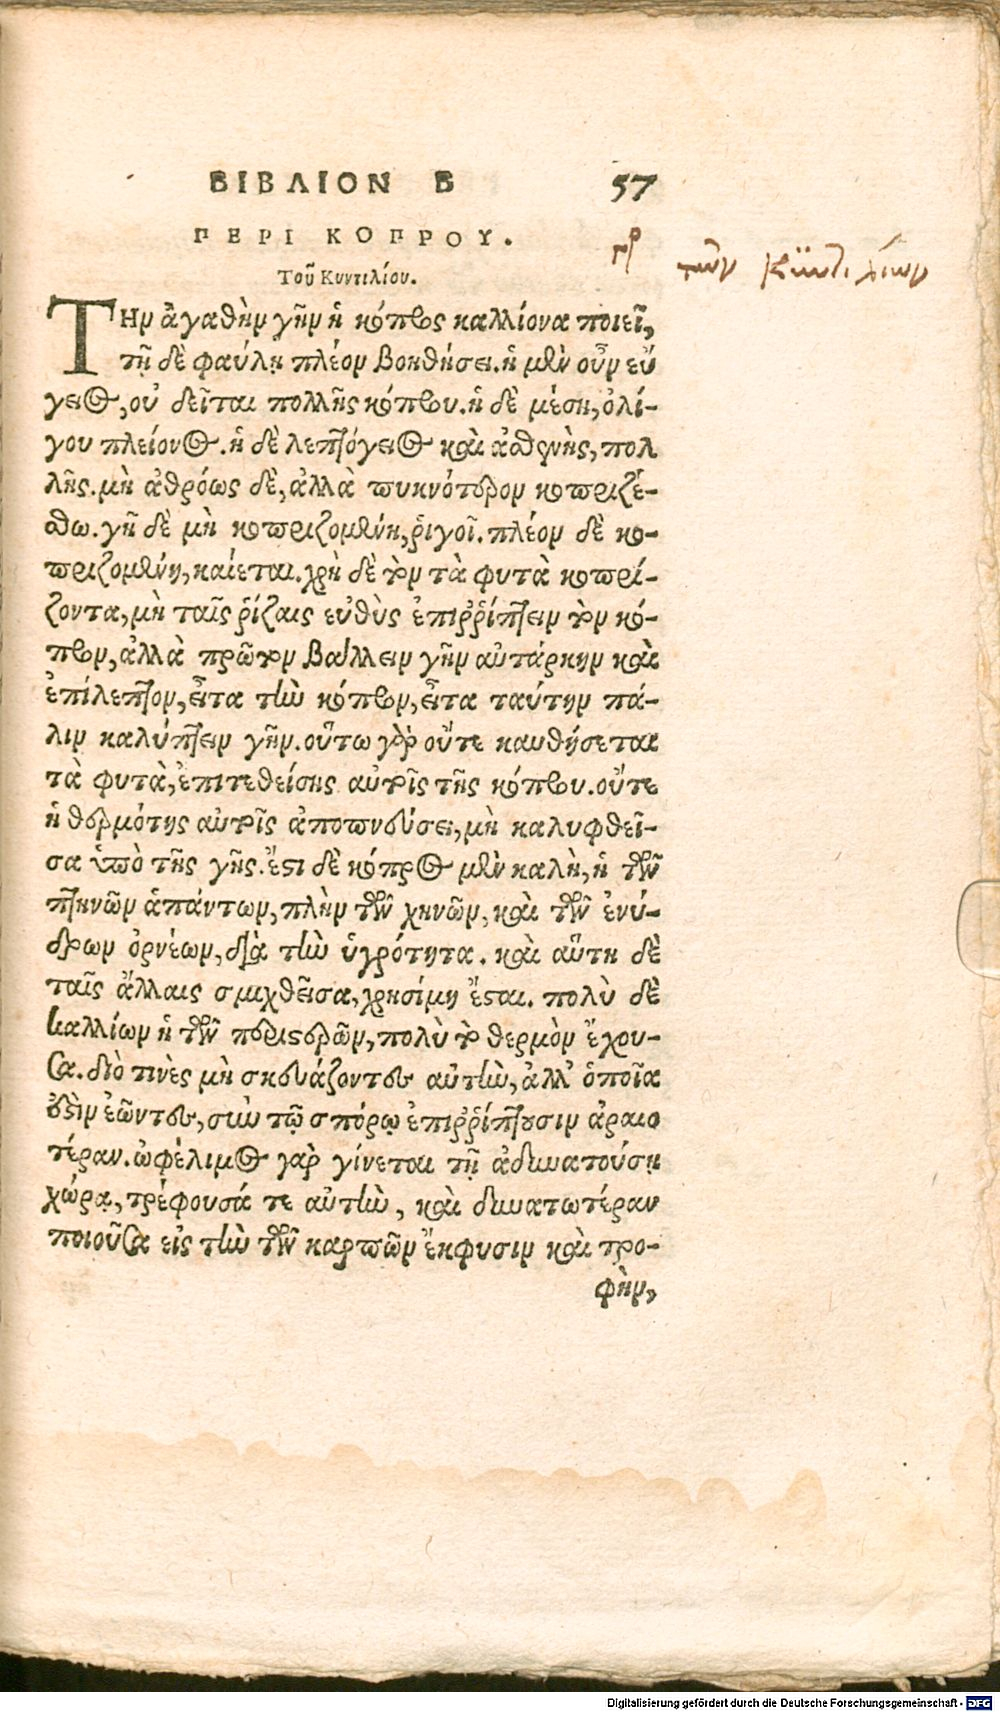 ΒΙΒΛΙΟΝ Β 57
ΠΕΡΙ ΚΟΠΡΟΥ.
Τοῦ Κυντιλίου.
τῶν Κϋντιλίων
ΤΗν ἀγαθὴν γῆν ἡ κόπρος καλλίονα ποιεῖ,
τῇ δὲ φαύλῃ πλέον βοηθήσει. ἡ μὲν οὖν εὔ
γειος, οὐ δεῖται πολλῆς κόπρου. ἡ δὲ μέση, ὀλί-
γου πλείονος. ἡ δὲ λεπτόγειος καὶ ἀσθενὴς, πολ
λῆς. μὴ ἀθρόως δὲ, ἀλλὰ πυκνότερον κοπριζέ-
σθω. γῆ δὲ μὴ κοπριζομένη, ῥιγοῖ. πλέον δὲ κο-
πριζομένη, καίεται. χρὴ δὲ τὸν τὰ φυτὰ κοπρί-
ζοντα, μὴ ταῖς ῥίζαις εὐθὺς ἐπιῤῥίπτειν τὴν κό-
προν, ἀλλὰ πρῶτον βάλλειν γῆν αὐτάρκην καὶ
ἐπίλεπτον, εἶτα τὴν κόπρον, εἶτα ταύτην πά-
λιν καλύπτειν γῆν. οὕτω γὰρ οὔτε καυθήσεται
τὰ φυτὰ, ἐπιτεθείσης αὐτοῖς τῆς κόπρου. οὔτε
ἡ θερμότης αὐτοῖς ἀποπνεύσει, μὴ καλυφθεῖ-
σα ὑπὸ τῆς γῆς. ἔστι δὲ κόπρος μὲν καλὴ, ἡ τῶν
πτηνῶν ἁπάντων, πλὴν τῶν χηνῶν, καὶ τῶν ἐνύ-
δρων ὀρνέων, διὰ τὴν ὑγρότητα. καὶ αὕτη δὲ
ταῖς ἄλλαις σμιχθεῖσα, χρησίμη ἔσται. πολὺ δὲ
καλλίων ἡ τῶν περιστερῶν, πολὺ τὸ θερμὸν ἔχου-
σα. διό τινὲς μὴ σκευάζοντες αὐτὴν, ἀλλ' ὁποῖα
οὖσιν ἐῶντες, σὺν τῷ σπόρῳ ἐπιῤῥίπτουσιν ἀραιο
τέραν. ὠφέλιμος γὰρ γίνεται τῇ ἀδυνατούσῃ
χώρᾳ, τρέφουσά τε αὐτὴν, καὶ δυνατωτέραν
ποιοῦσα εἰς τὴν τῶν καρπῶν ἔκφυσιν καὶ τρο-
φὴν,
Digitalisierung gefördert durch die Deutsche Forschungsgemeinschaft - DFG